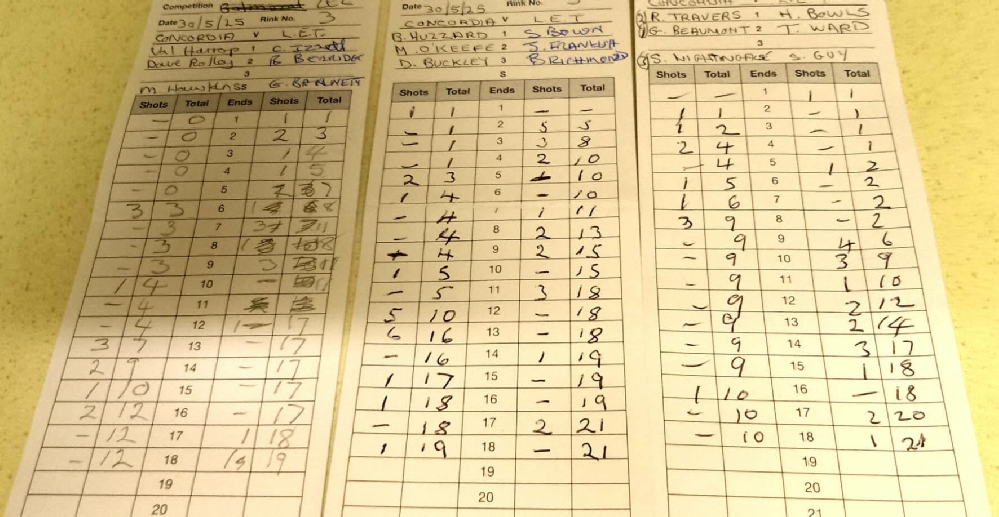 Competition LEL
Date 30/5/25 Rink No. 3
CONCORDIA V L.E.T.
Val Harrop 1
Dave Rolley 2
3
M. S G.
Shots Total Ends Shots Total
- 0 1 1 1
- 0 2 2 3
- 0 3 1 4
- 0 4 1 5
- 0 5 2 7
3 3 6 1 8
- 3 7 3 11
- 3 8
- 3 9 3
1 4 10 -
- 4 11
- 4 12 1 17
3 7 13 - 17
2 9 14 - 17
1 10 15 - 17
2 12 16 - 17
- 12 17 1 18
- 12 18 1 19
19
20
Date 30/5/25 Rink No.
CONCORDIA V L.E.T
B. HUZZARD 1 S BOWN
M. O'KEEFE 2 J. FRANKLIN
D. BUCKLEY 3 B RICHMOND
S
Shots Total Ends Shots Total
1 1 1 - -
- 1 2 5 5
- 1 3 3 8
- 1 4 2 10
2 3 5 - 10
1 4 6 - 10
- 4 7 1 11
- 4 8 2 13
- 4 9 2 15
1 5 10 - 15
- 5 11 3 18
5 10 12 - 18
6 16 13 - 18
- 16 14 1 19
1 17 15 - 19
1 18 16 - 19
- 18 17 2 21
1 19 18 - 21
19
20
CONCORDIA V
R. TRAVERS 1 H. BOWLS
G. BEAUMONT 2 T. WARD
3
S. NIGHTINGALE S. GUY
Shots Total Ends Shots Total
- - 1 1 1
1 1 2 - 1
1 2 3 - 1
2 4 4 - 1
- 4 5 1 2
1 5 6 - 2
1 6 7 - 2
3 9 8 - 2
- 9 9 4 6
- 9 10 3 9
- 9 11 1 10
- 9 12 2 12
- 9 13 2 14
- 9 14 3 17
- 9 15 1 18
1 10 16 - 18
- 10 17 2 20
- 10 18 1 21
19
20
21